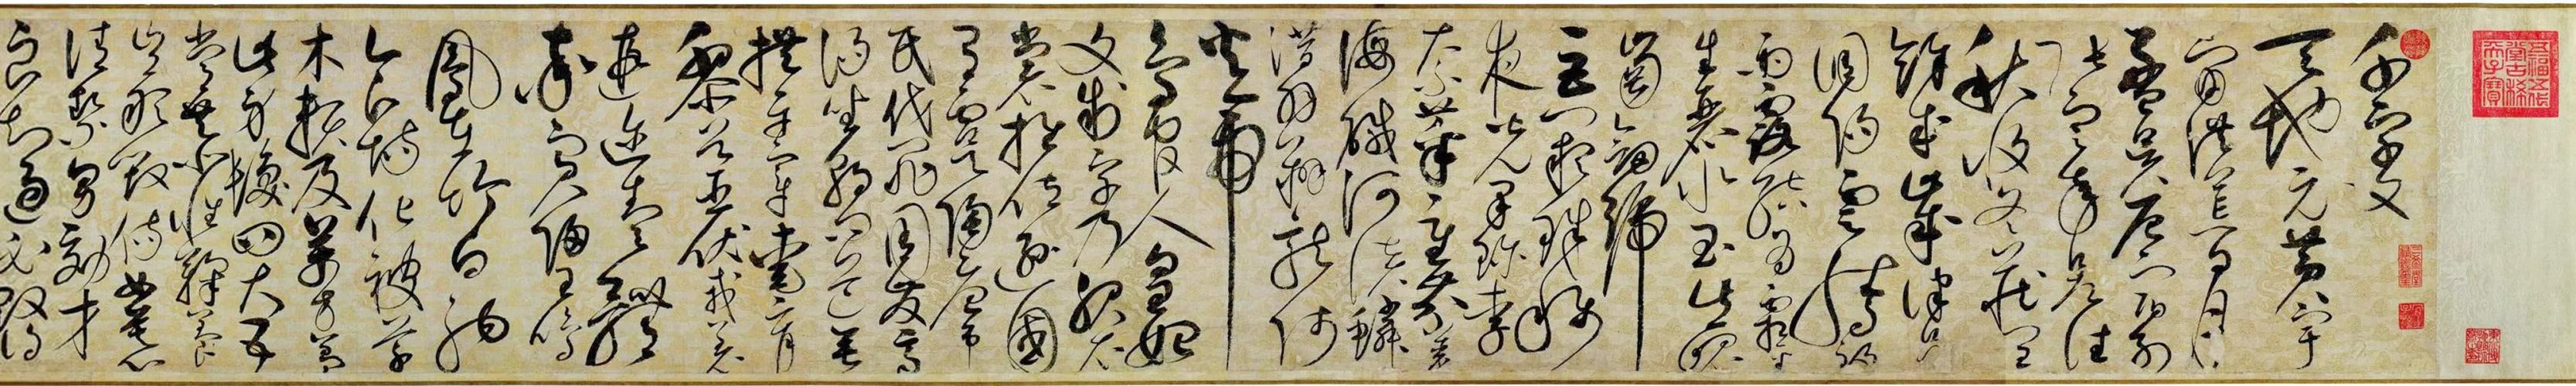 五福五代堂古稀天子寶
千字文
天地元黃宇
宙洪荒日月
盈昃辰宿列
張寒來暑往
秋收冬藏閏
餘成歲律呂
調陽雲騰致
雨露結為霜金
生麗水玉出崑
崗劍號
巨闕珠稱
夜光果珍李
柰菜重芥薑
海鹹河淡鱗
潛羽翔龍師
火帝
鳥官人皇始
文制字乃服衣
裳推位遜國
有虞陶唐弔
民伐罪周發商
湯坐朝問道垂
拱平章愛育
黎首臣伏戎羌
遐邇壹體
率賓歸王鳴
鳳在竹白駒
食場化被草
木賴及萬方蓋
此身髮四大五
常恭惟鞠養
豈敢毀傷女慕
清絜男效才
良知過必改得